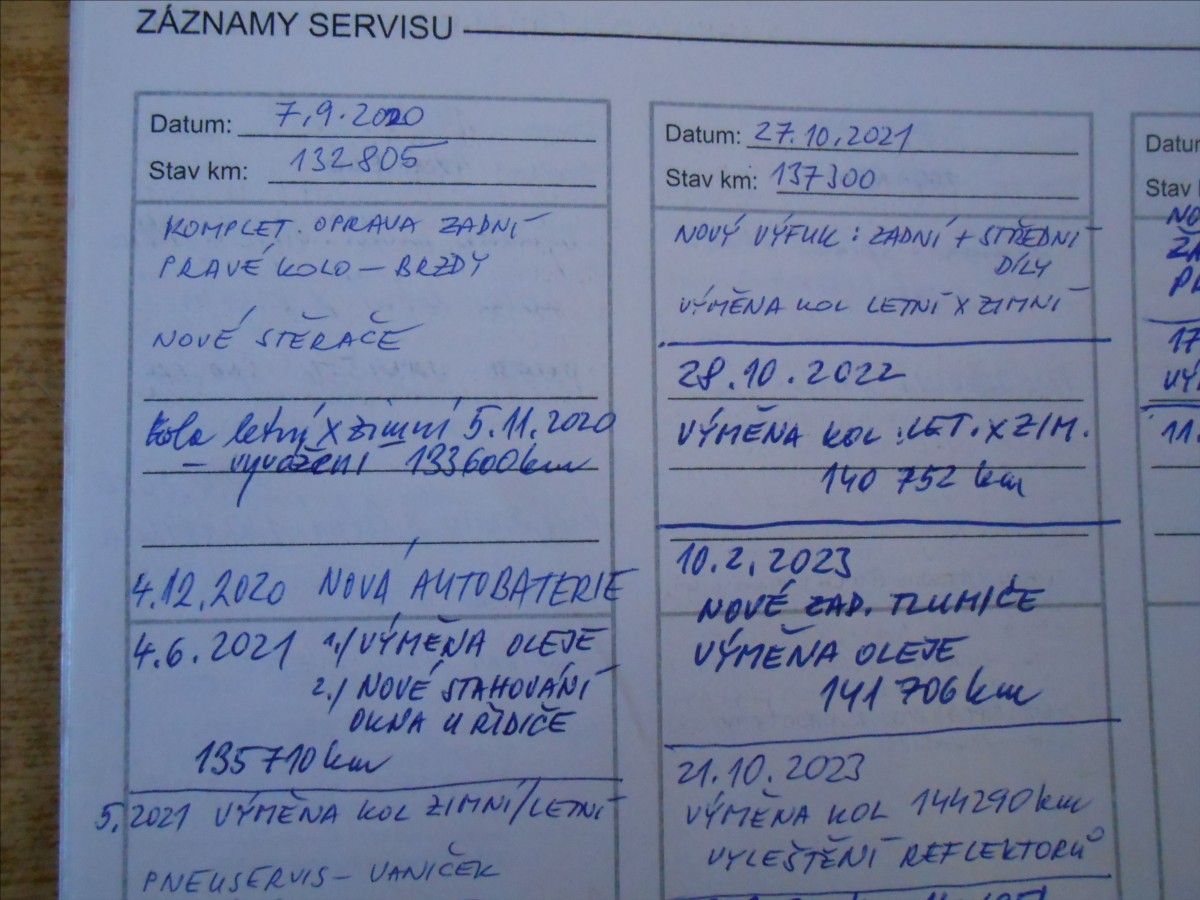 ZÁZNAMY SERVISU
Datum: 7.9.2020
Stav km: 132805
KOMPLET. OPRAVA ZADNÍ
PRAVÉ KOLO – BRZDY
NOVÉ STĚRAČE
kola letný x zimní 5.11.2020
– vyvožení 133600km
4.12.2020 NOVÁ AUTOBATERIE
4.6.2021 1./ VÝMĚNA OLEJE
2./ NOVÉ STAHOVÁNÍ
OKNA U ŘIDIČE
135710km
5.2021 VÝMĚNA KOL ZIMNÍ/LETNÍ
PNEUSERVIS – VANIČEK
Datum: 27.10.2021
Stav km: 137300
NOVÝ VÝFUK: ZADNÍ + STŘEDNÍ
DÍLY
VÝMĚNA KOL LETNÍ X ZIMNÍ
28.10.2022
VÝMĚNA KOL: LET. X ZIM.
140 752 km
10.2.2023
NOVÉ ZAD. TLUMIČE
VÝMĚNA OLEJE
141 706 km
21.10.2023
VÝMĚNA KOL 144290km
VYLEŠTĚNÍ REFLEKTORŮ
Datum
Stav
17
11.